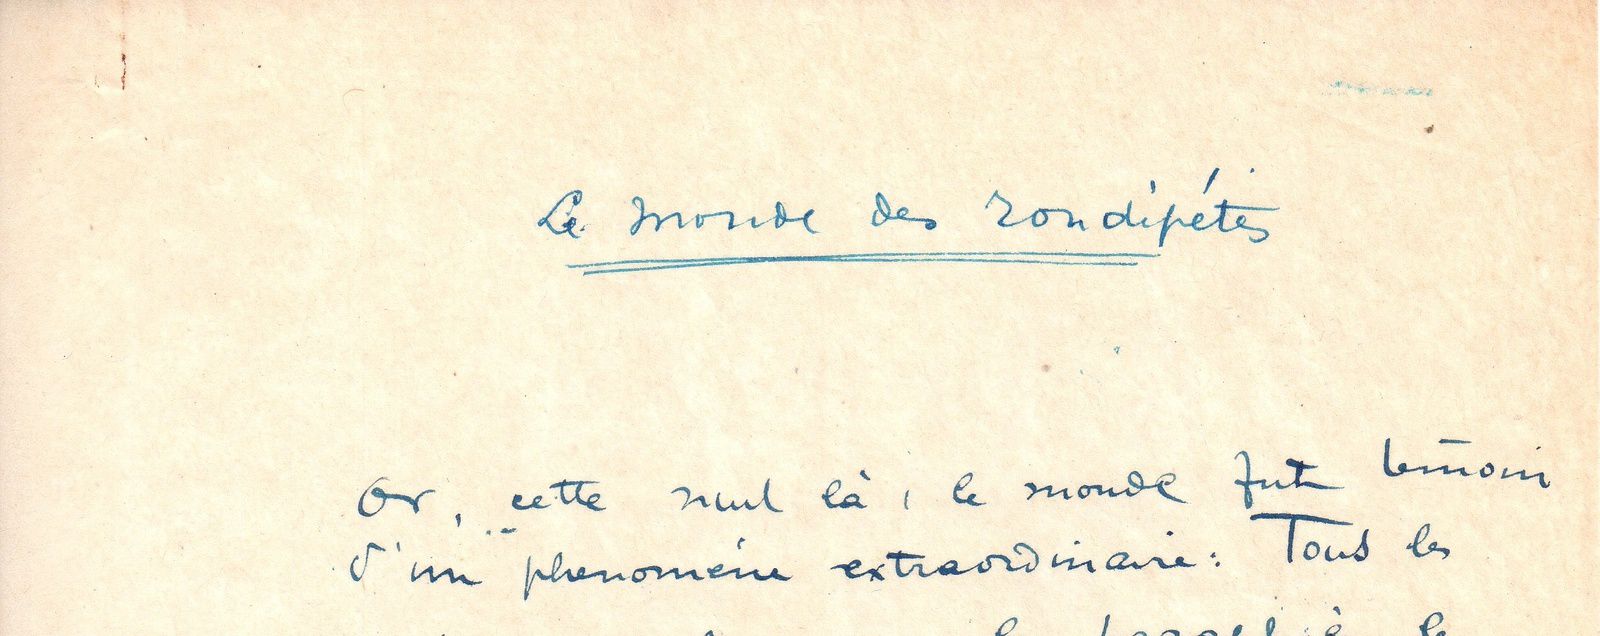 Le monde des rondipétes
Or, cette nuit là, le monde fut témoin
d'un phenomène extraordinaire: Tous les